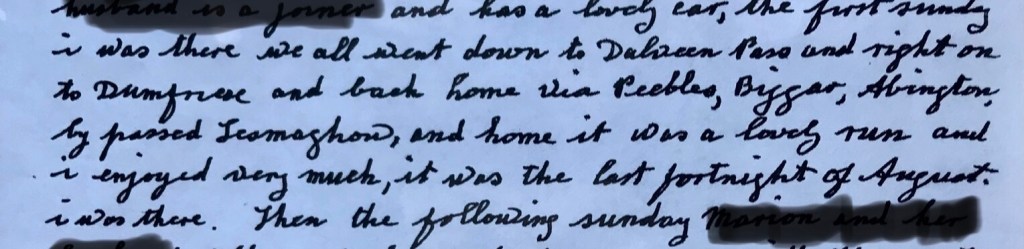 husband is a joiner and has a lovely car, the first sunday
i was there we all went down to Dalveen Pass and right on
to Dumfriese and back home via Peebles, Biggar, Abington,
by passed Lesmaghow, and home it was a lovely run and
i enjoyed very much, it was the last fortnight of August.
i was there. Then the following sunday Marion and her